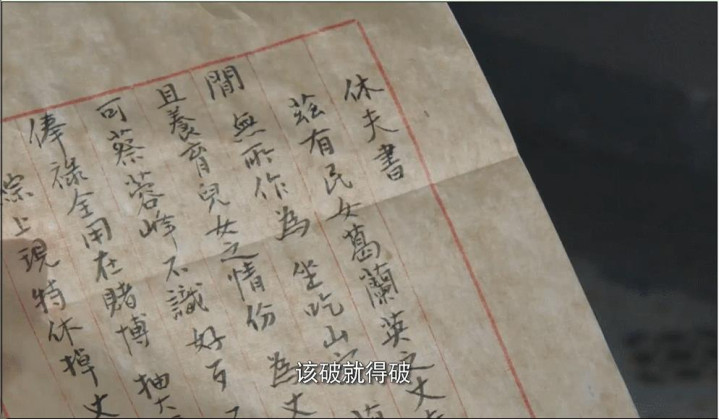 休夫書
茲有民女葛蘭英之丈
閒無所作為 坐吃山
且養育兒女之情份 為丈
可蔡蓉峰不識好歹
俸祿全用在賭博 抽
綜上現特休掉丈
该破就得破